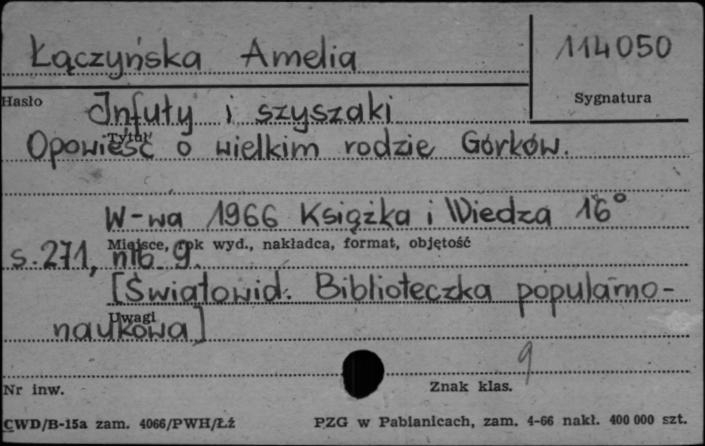 Łączyńska Amelia
114050
Hasło
Sygnatura
Infuły i szyszaki
Tytuł
Opowieść o wielkim rodzie Górków.
W-wa 1966 Książka i Wiedza 16°
Miejsce, rok wyd., nakładca, format, objętość
s. 271, nlb. 9.
[Światowid. Biblioteczka popularno-
Uwagi
naukowa]
9
Nr inw.
Znak klas.
CWD/B-15a zam. 4066/PWH/Łź
PZG w Pabianicach, zam. 4-66 nakł. 400 000 szt.